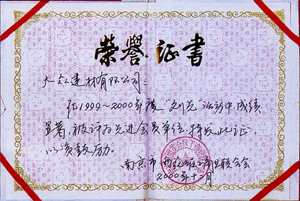 荣誉证书
大众建材有限公司：
在1999～2000年度创先活动中成绩
显著，被评为先进会员单位，特发此证，
以资鼓励。
南京市
联合会
2000年十二月